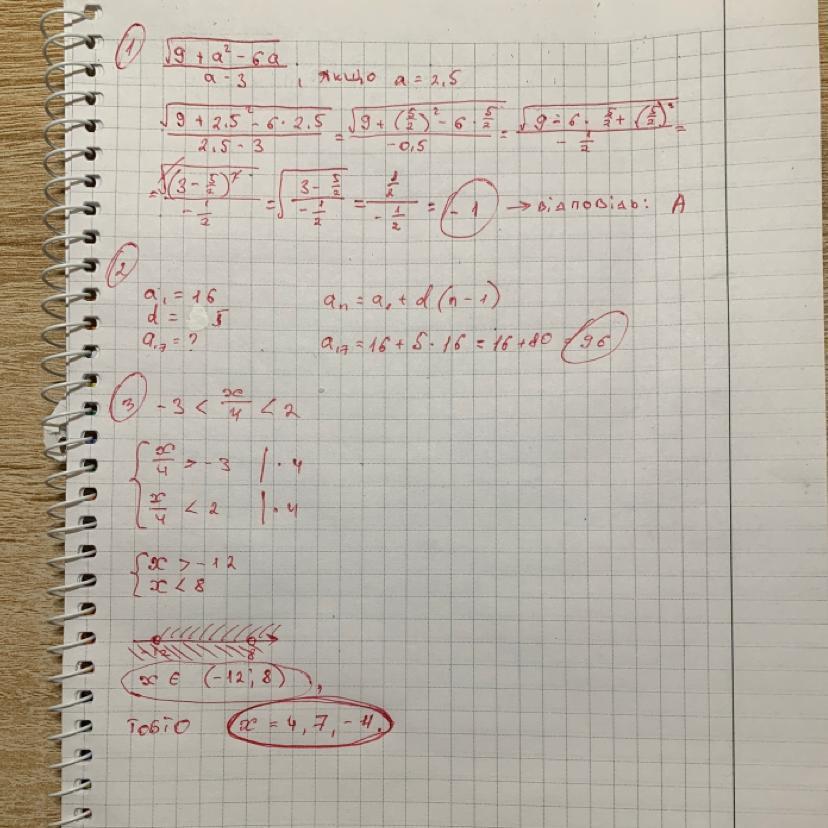 1 √(9 + a² - 6a) / (a - 3) , якщо a = 2,5
√(9 + 2,5² - 6 · 2,5) / (2,5 - 3) = √(9 + (5/2)² - 6 · 5/2) / (-0,5) = √(9 - 6 · 5/2 + (5/2)²) / (-1/2) =
= √((3 - 5/2)²) / (-1/2) = √((3 - 5/2) / (-1/2)) = (1/2) / (-1/2) = -1 → відповідь: А
2
a₁ = 16 aₙ = a₁ + d (n - 1)
d = 5
a₁₇ = ? a₁₇ = 16 + 5 · 16 = 16 + 80 = 96
3 -3 < x/4 < 2
{ x/4 > -3 | · 4
x/4 < 2 | · 4
{ x > -12
x < 8
-12 8
x ∈ (-12; 8) ,
тобто x = 4, 7, -4.